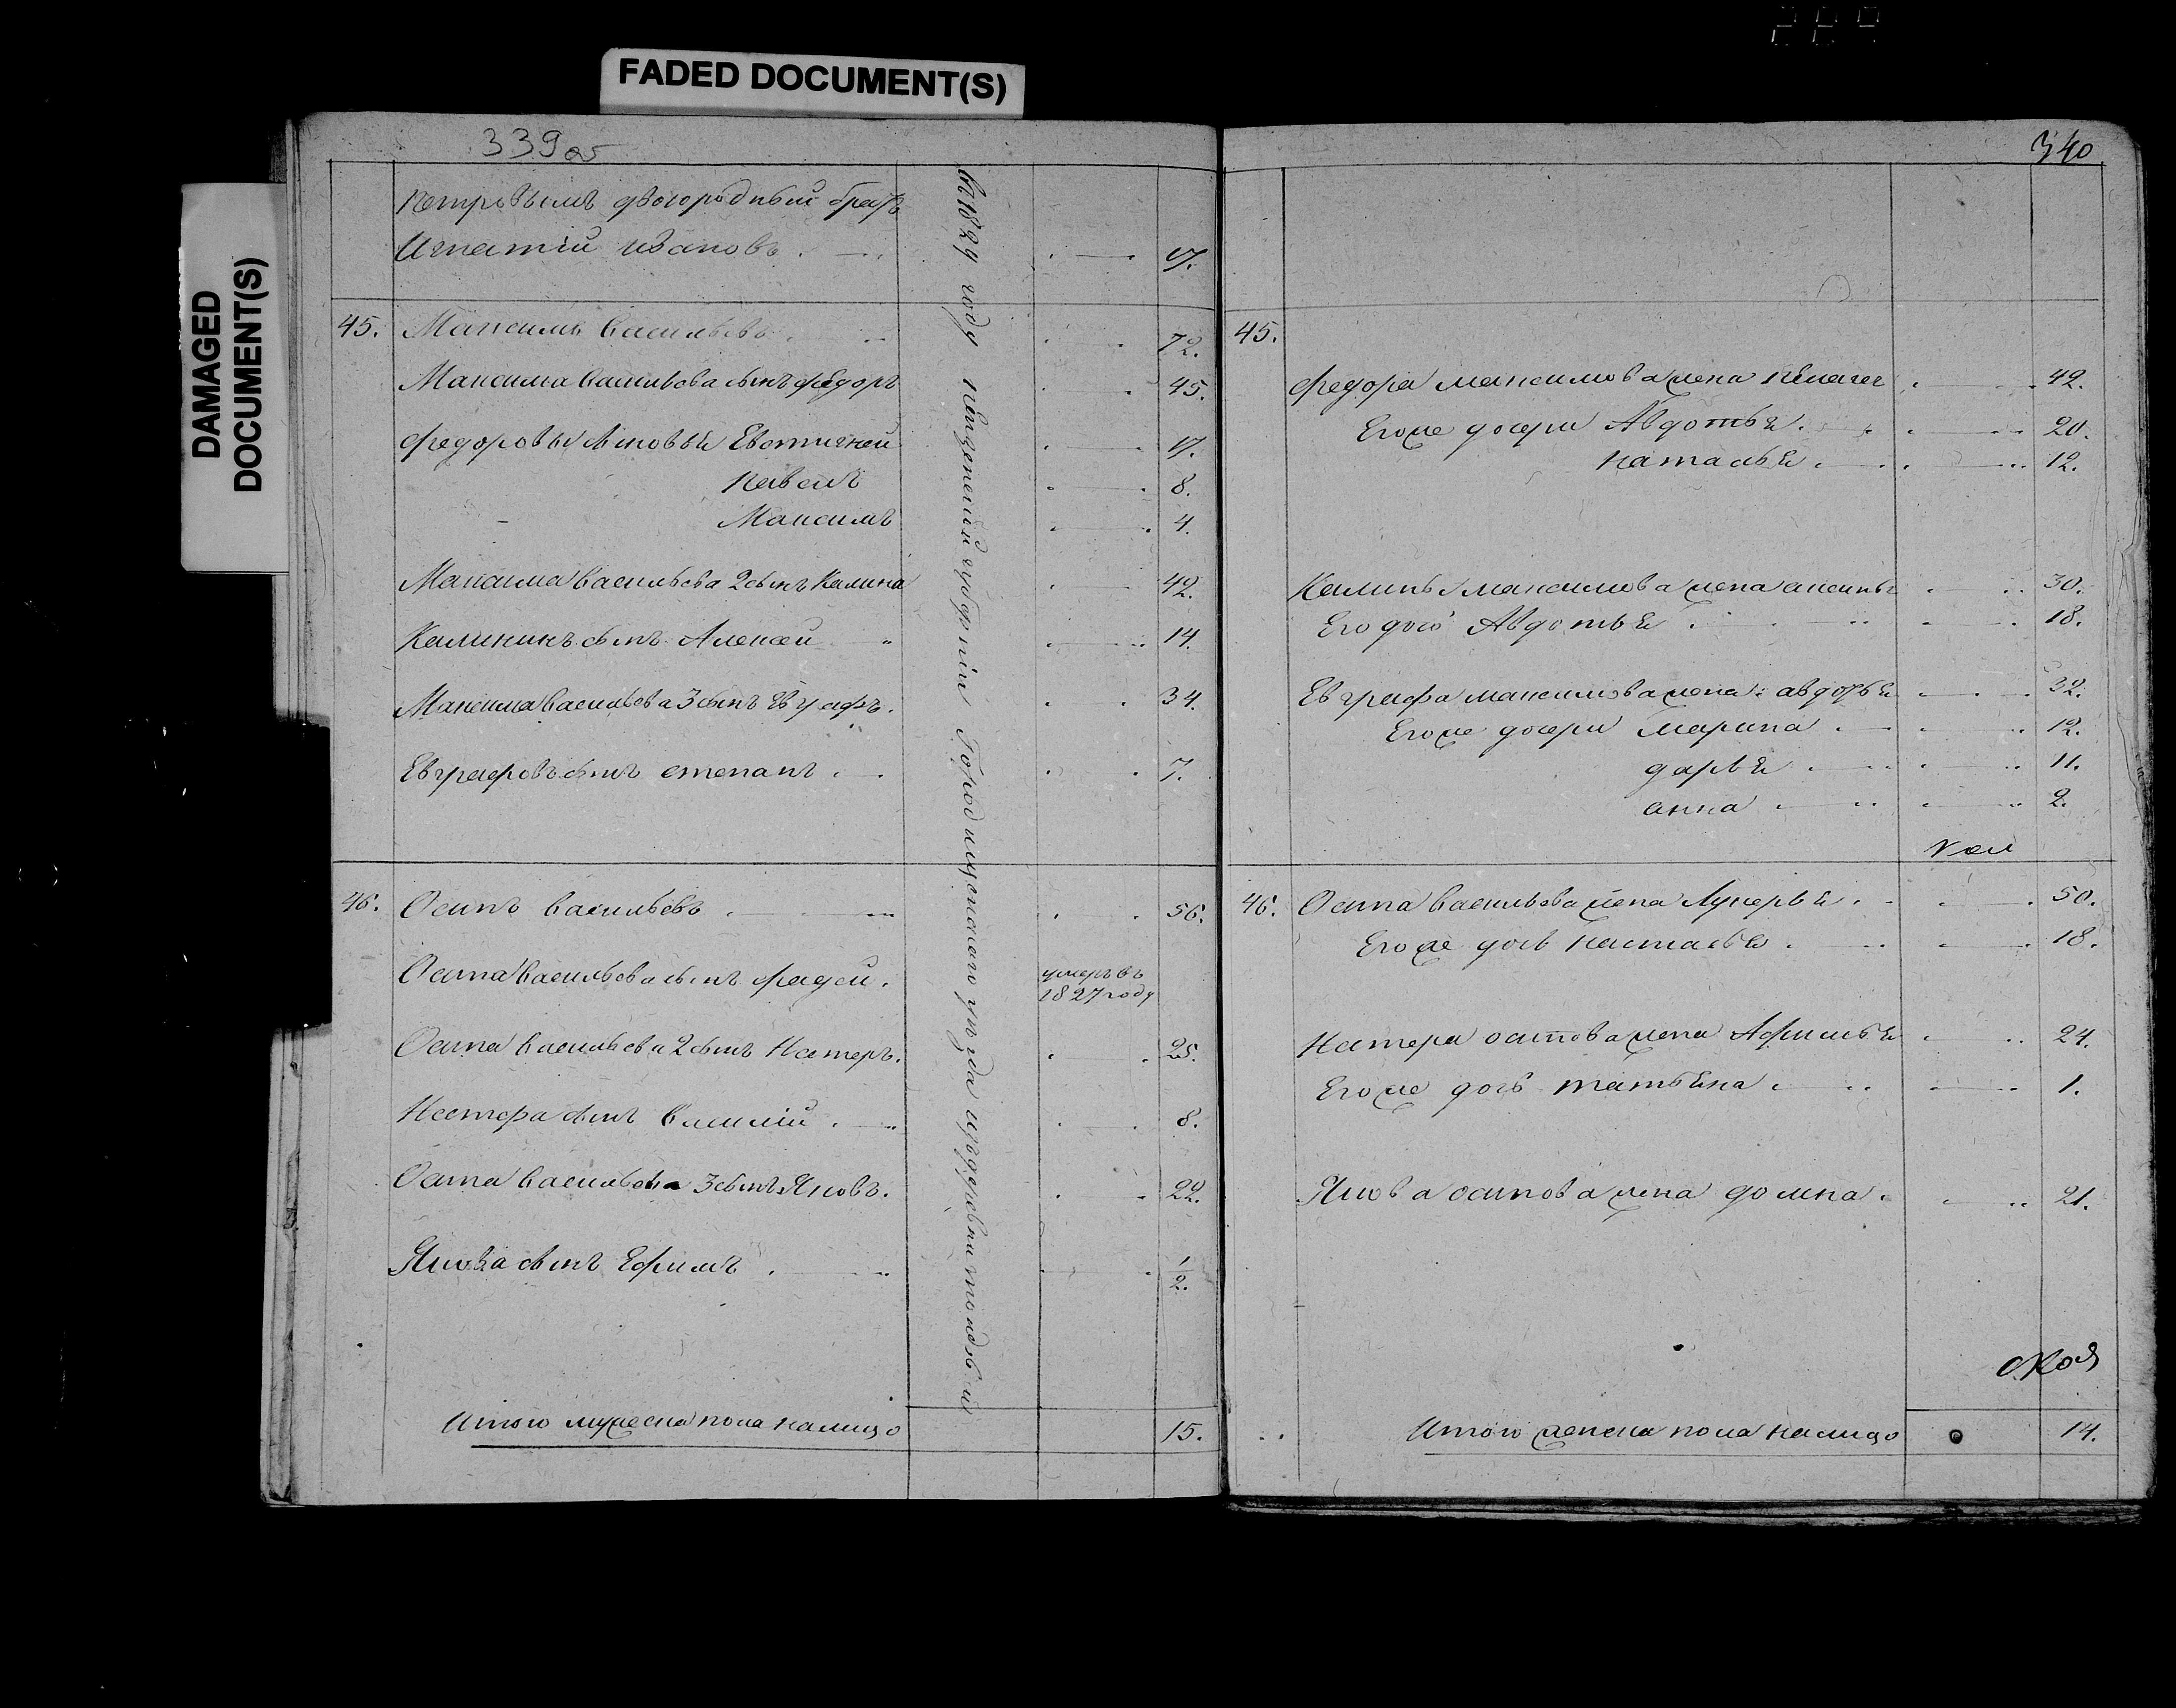 FADED DOCUMENT(S)
DAMAGED
DOCUMENT(S)
339об
Петровымъ двоюродный братъ
Игнатий Ивановъ
въ 1829 году Пензенской губернии Городищенского уезда из деревни
45. Максимъ Васильевъ 72.
Максима Васильева сынъ Федоръ 45.
Федоровы сыновья Евстигней 17.
Павелъ 8.
Максимъ 4.
Максима Васильева 2 сынъ Калина 42.
Калининъ сынъ Алексей 14.
Максима Васильева 3 сынъ Евграфъ. 34.
Евграфовъ сынъ степанъ 7.
46. Осипъ Васильевъ 56.
Осипа Васильева сынъ Фадей. умеръ въ
1827 году
Осипа Васильева 2 сынъ Нестеръ. 25.
Нестера сынъ Василий 8.
Осипа Васильева 3 сынъ Яковъ. 22.
Якова сынъ Ефимъ 1/2.
Итого мужеска пола налицо 15.
340
45.
Федора Максимова жена 42.
Егоже дочери Авдотья 20.
Наталья 12.
Калины Максимова жена 30.
Его дочь Авдотья 18.
Евграфа Максимова жена авдотья 32.
Егоже дочери марина 12.
дарья 11.
анна 2.
46. Осипа Васильева жена Лукерья 50.
Егоже дочь Настасья 18.
Нестера осипова жена Афимья 24.
Егоже дочь татьяна 1.
Якова осипова жена домна 21.
Итого женска пола налицо 14.